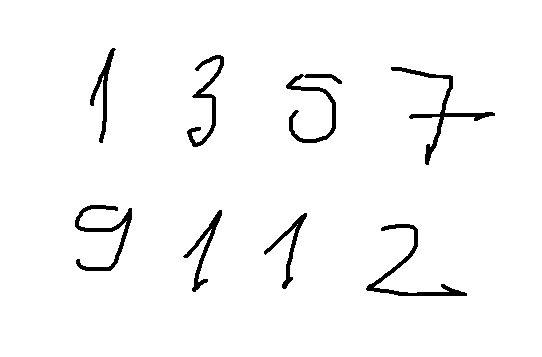 1 3 5 7
9 1 1 2